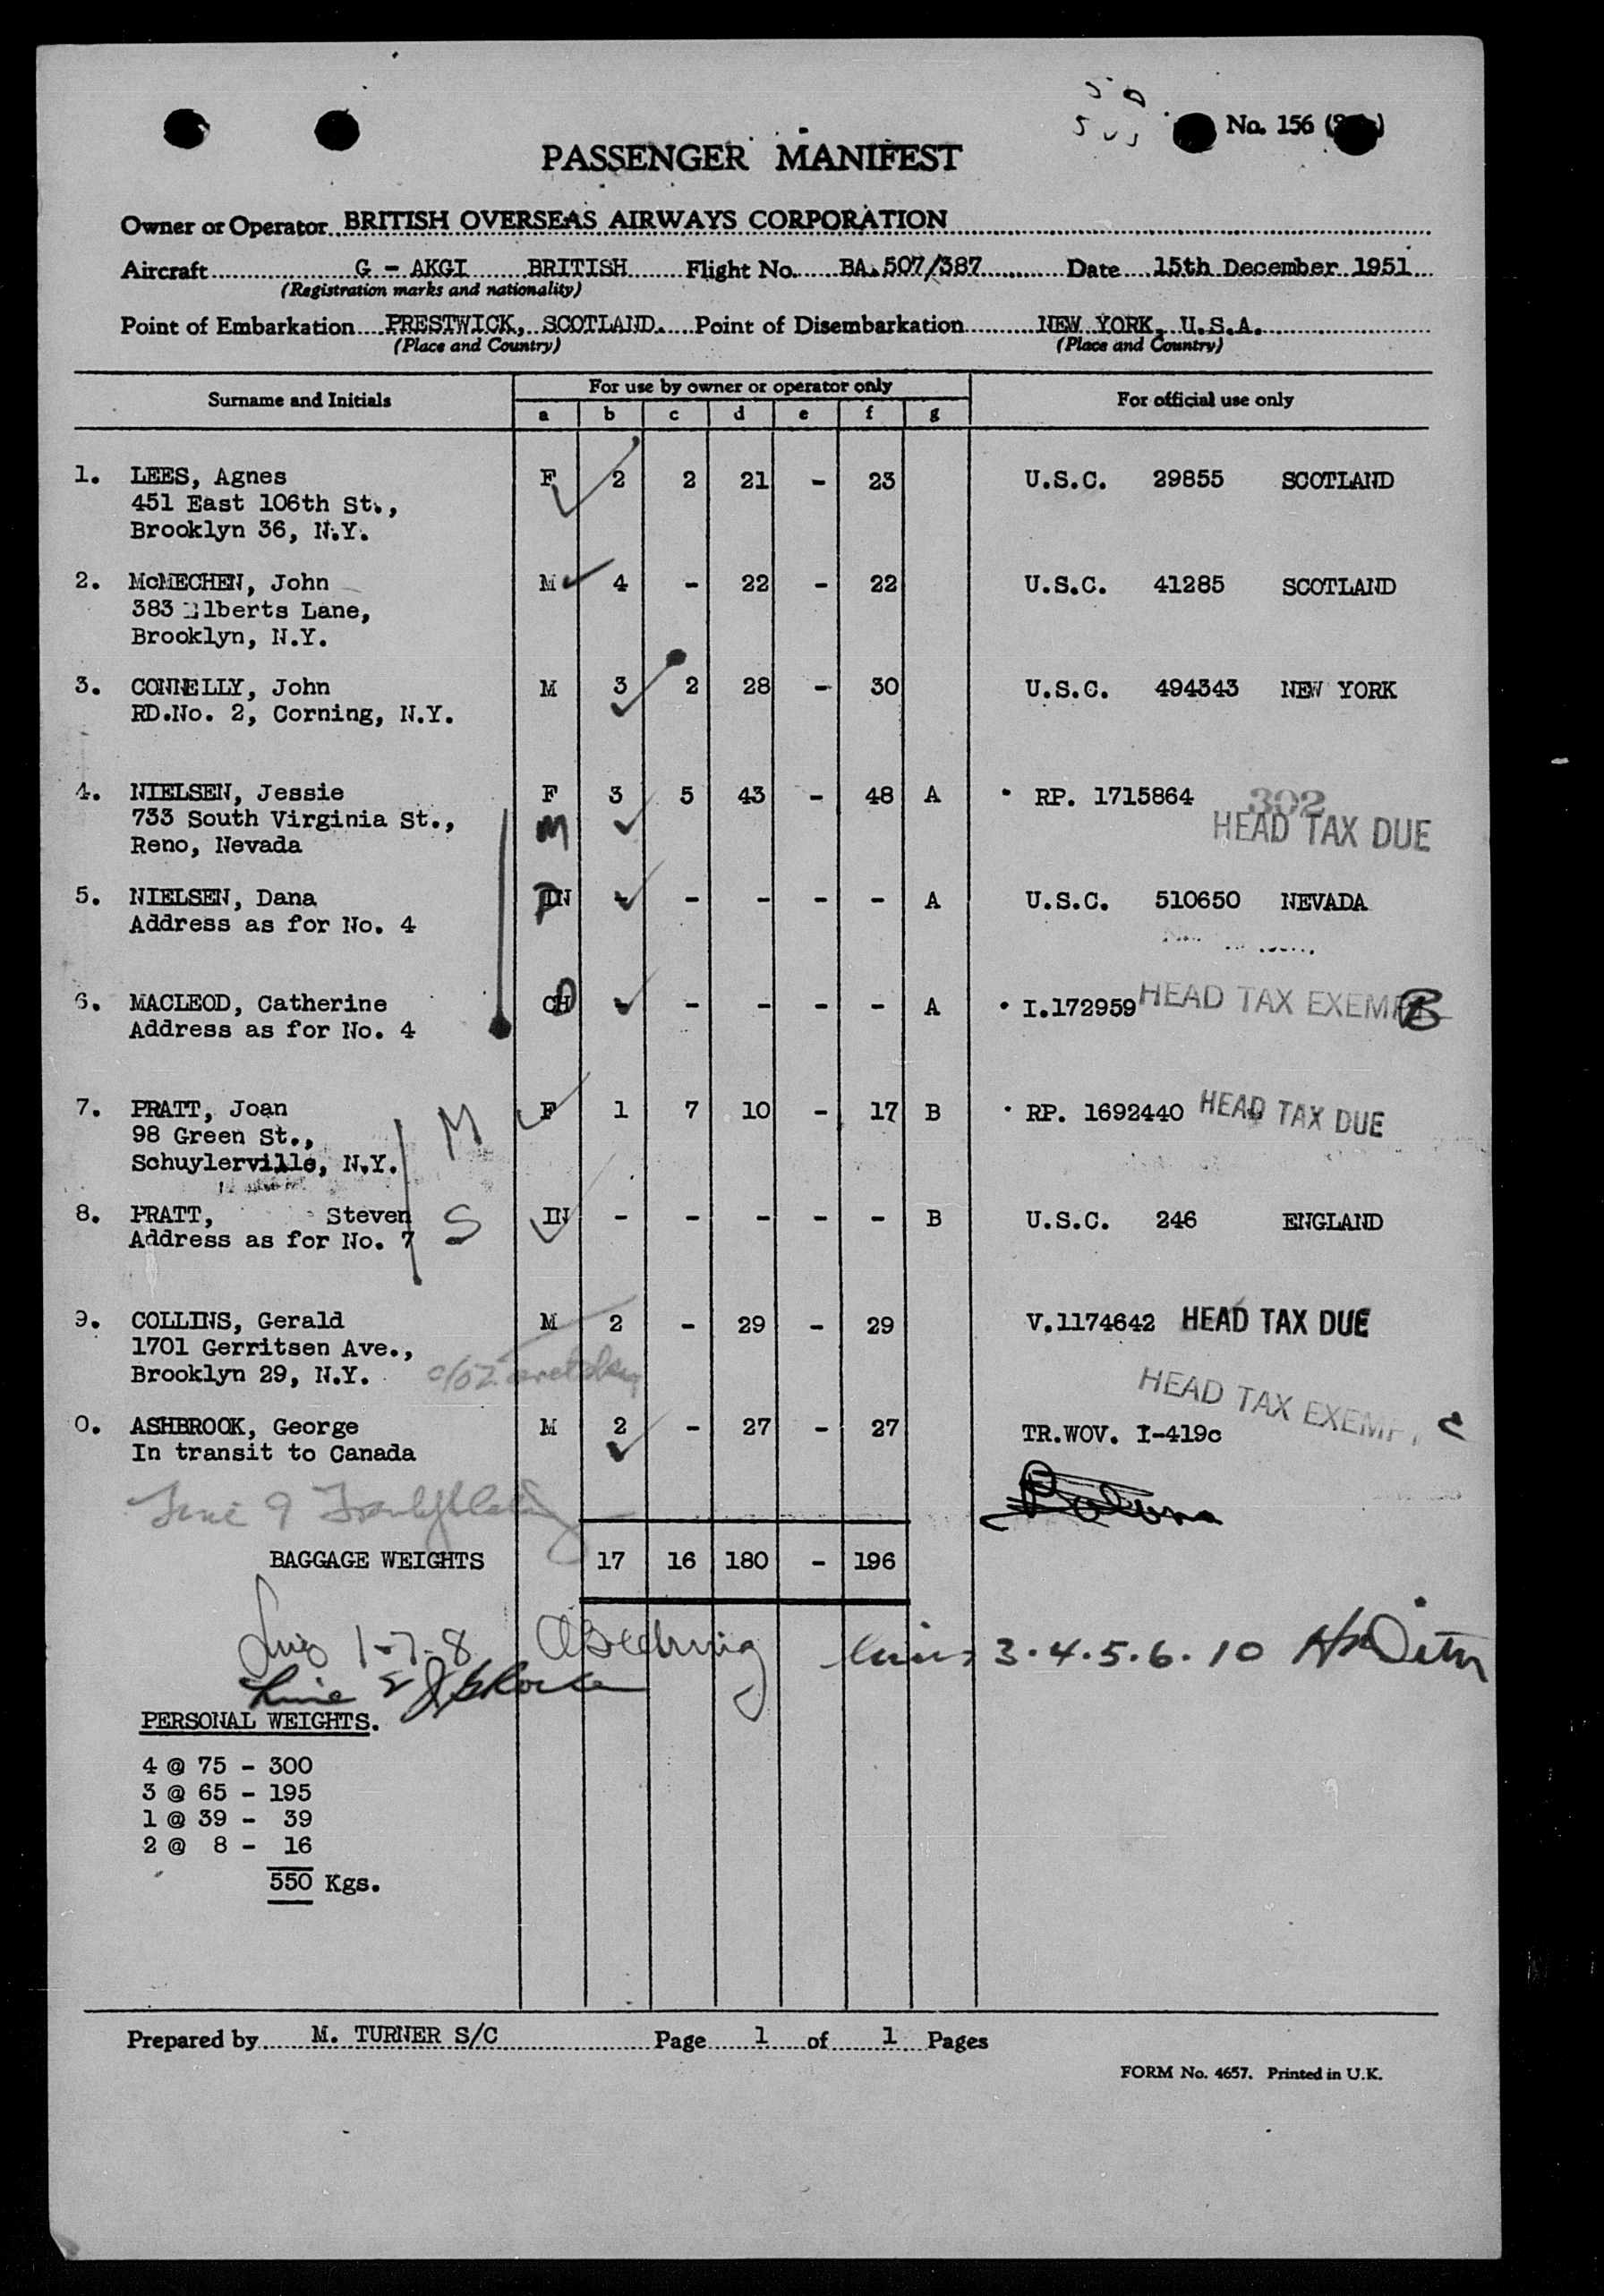 No. 156
PASSENGER MANIFEST
Owner or Operator BRITISH OVERSEAS AIRWAYS CORPORATION
Aircraft G - AKGI BRITISH Flight No. BA.507/387 Date 15th December 1951
(Registration marks and nationality)
Point of Embarkation PRESTWICK, SCOTLAND. Point of Disembarkation NEW YORK, U.S.A.
(Place and Country) (Place and Country)
Surname and Initials For use by owner or operator only For official use only
a b c d e f g
1. LEES, Agnes F 2 2 21 - 23 U.S.C. 29855 SCOTLAND
451 East 106th St.,
Brooklyn 36, N.Y.
2. McMECHEN, John M 4 - 22 - 22 U.S.C. 41285 SCOTLAND
383 Lane,
Brooklyn, N.Y.
3. CONNELLY, John M 3 2 28 - 30 U.S.C. 494343 NEW YORK
RD.No. 2, Corning, N.Y.
4. NIELSEN, Jessie F 3 5 43 - 48 A RP. 1715864 302
733 South Virginia St., M HEAD TAX DUE
Reno, Nevada
5. NIELSEN, Dana IN - - - - - A U.S.C. 510650 NEVADA
Address as for No. 4
6. MACLEOD, Catherine CH - - - - - A I.172959 HEAD TAX EXEMPT B
Address as for No. 4
7. PRATT, Joan M F 1 7 10 - 17 B RP. 1692440 HEAD TAX DUE
98 Green St.,
Schuylerville, N.Y.
8. PRATT, Steven S IN - - - - - B U.S.C. 246 ENGLAND
Address as for No. 7
9. COLLINS, Gerald M 2 - 29 - 29 V.1174642 HEAD TAX DUE
1701 Gerritsen Ave.,
Brooklyn 29, N.Y.
HEAD TAX EXEMPT
0. ASHBROOK, George M 2 - 27 - 27 TR.WOV. I-419c
In transit to Canada
BAGGAGE WEIGHTS 17 16 180 - 196
1-7-8 3.4.5.6.10
PERSONAL WEIGHTS.
4 @ 75 - 300
3 @ 65 - 195
1 @ 39 - 39
2 @ 8 - 16
550 Kgs.
Prepared by M. TURNER S/C Page 1 of 1 Pages
FORM No. 4657. Printed in U.K.